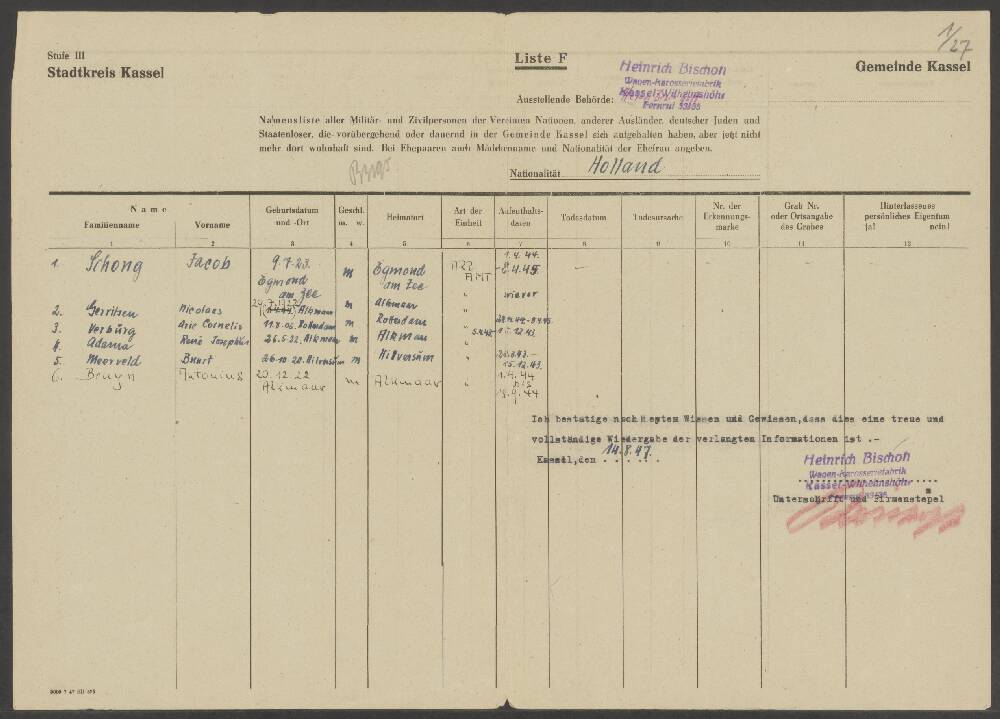 1/27
Stufe III
Stadtkreis Kassel
Liste F
Gemeinde Kassel
Heinrich Bischoff
Wagen-Karosseriefabrik
Kassel-Wilhelmshöhe
Fernruf 33155
Ausstellende Behörde:
Namensliste aller Militär- und Zivilpersonen der Vereinten Nationen, anderer Ausländer, deutscher Juden und
Staatenloser, die vorübergehend oder dauernd in der Gemeinde Kassel sich aufgehalten haben, aber jetzt nicht
mehr dort wohnhaft sind. Bei Ehepaaren auch Mädchenname und Nationalität der Ehefrau angeben.
Nationalität Holland
Name Geburtsdatum Geschl. Heimatort Art der Aufenthalts- Todesdatum Todesursache Nr. der Grab Nr. Hinterlassenes
Familienname Vorname und -Ort m. w. Einheit daten Erkennungs- oder Ortsangabe persönliches Eigentum
marke des Grabes ja! nein!
1 2 3 4 5 6 7 8 9 10 11 12
1. Schong Jacob 9.7.23. Egmond am Zee m Egmond am Zee 1.4.44. - 8.4.45
2. Gerritsen Nicolaas 24.7.1922 Alkmaar m Alkmaar " wie vor
3. Verburg Arie Cornelis 11.8.06. Rotterdam m Rotterdam "
4. Adama René Josephus 26.5.22. Alkmaar m Alkmaar " 15.12.43
5. Meerveld Beert 26.10.20. Hilversum m Hilversum " 15.12.43.
6. Bruyn Antonius 20.12.22 Alkmaar m Alkmaar " 1.4.44 bis 18.9.44
Ich bestätige nach bestem Wissen und Gewissen, dass dies eine treue und
vollständige Wiedergabe der verlangten Informationen ist .-
Kassel, den 14.8.47.
Heinrich Bischoff
Wagen-Karosseriefabrik
Kassel-Wilhelmshöhe
Unterschrift und Firmenstepel